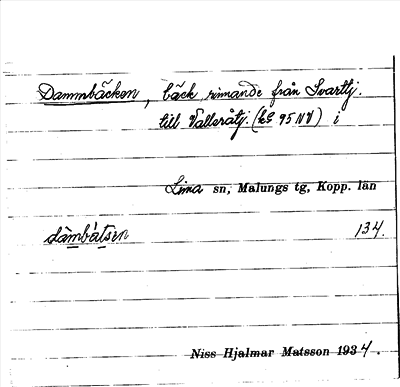 Dammbäcken, bäck rinnande från Svarttj.
till Vallsråtj. (kG 95 NV) i
Lima sn, Malungs tg, Kopp. län
dàmbátsen 134.
Niss Hjalmar Matsson 1934.